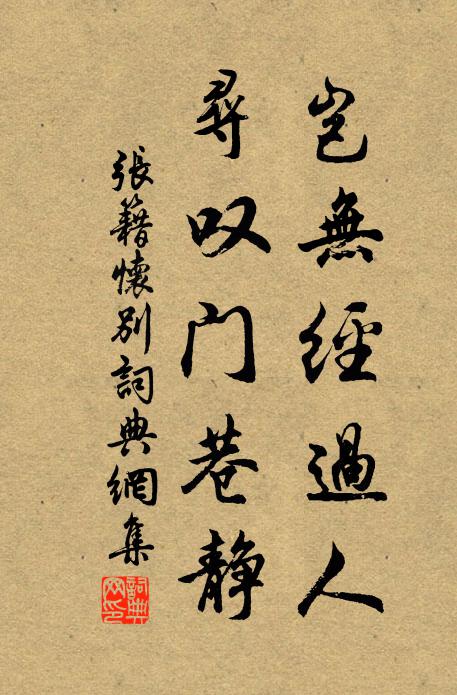 岂無經過人
尋叹门巷静
張籍懷別詞典網集
詞典网印